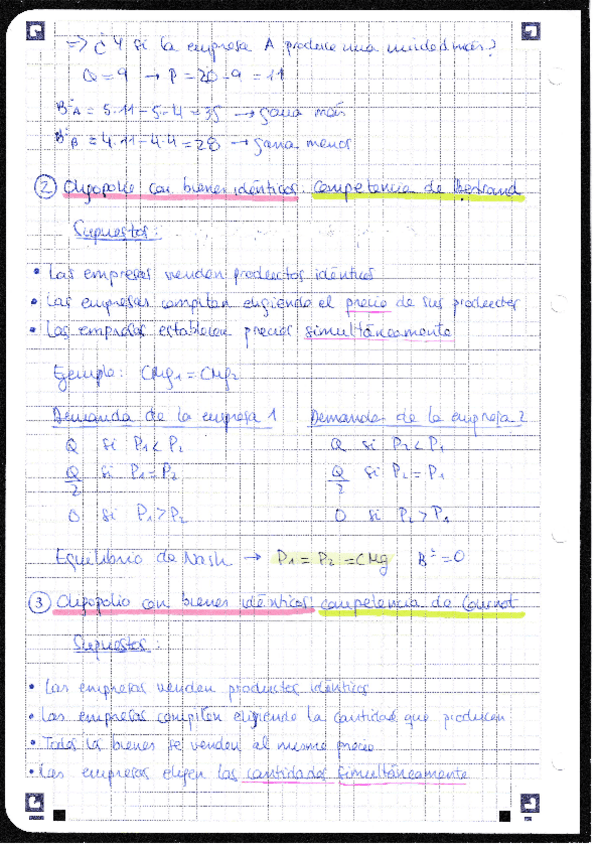 => ¿Y si la empresa A produce una unidad más?
Q = 9 → P = 20 - 9 = 11
BºA = 5·11 - 5·4 = 35 → gana más
BºB = 4·11 - 4·4 = 28 → gana menos
② Oligopolio con bienes idénticos: competencia de Bertrand
Supuestos:
• Las empresas venden productos idénticos
• Las empresas compiten eligiendo el precio de sus productos
• Las empresas establecen precios simultáneamente
Ejemplo: CMg1 = CMg2
Demanda de la empresa 1 Demanda de la empresa 2
Q si P1 < P2 Q si P2 < P1
Q/2 si P1 = P2 Q/2 si P2 = P1
0 si P1 > P2 0 si P2 > P1
Equilibrio de Nash → P1 = P2 = CMg Bº = 0
③ Oligopolio con bienes idénticos: competencia de Cournot
Supuestos:
• Las empresas venden productos idénticos
• Las empresas compiten eligiendo la cantidad que producen
• Todos los bienes se venden al mismo precio
• Las empresas eligen las cantidades simultáneamente